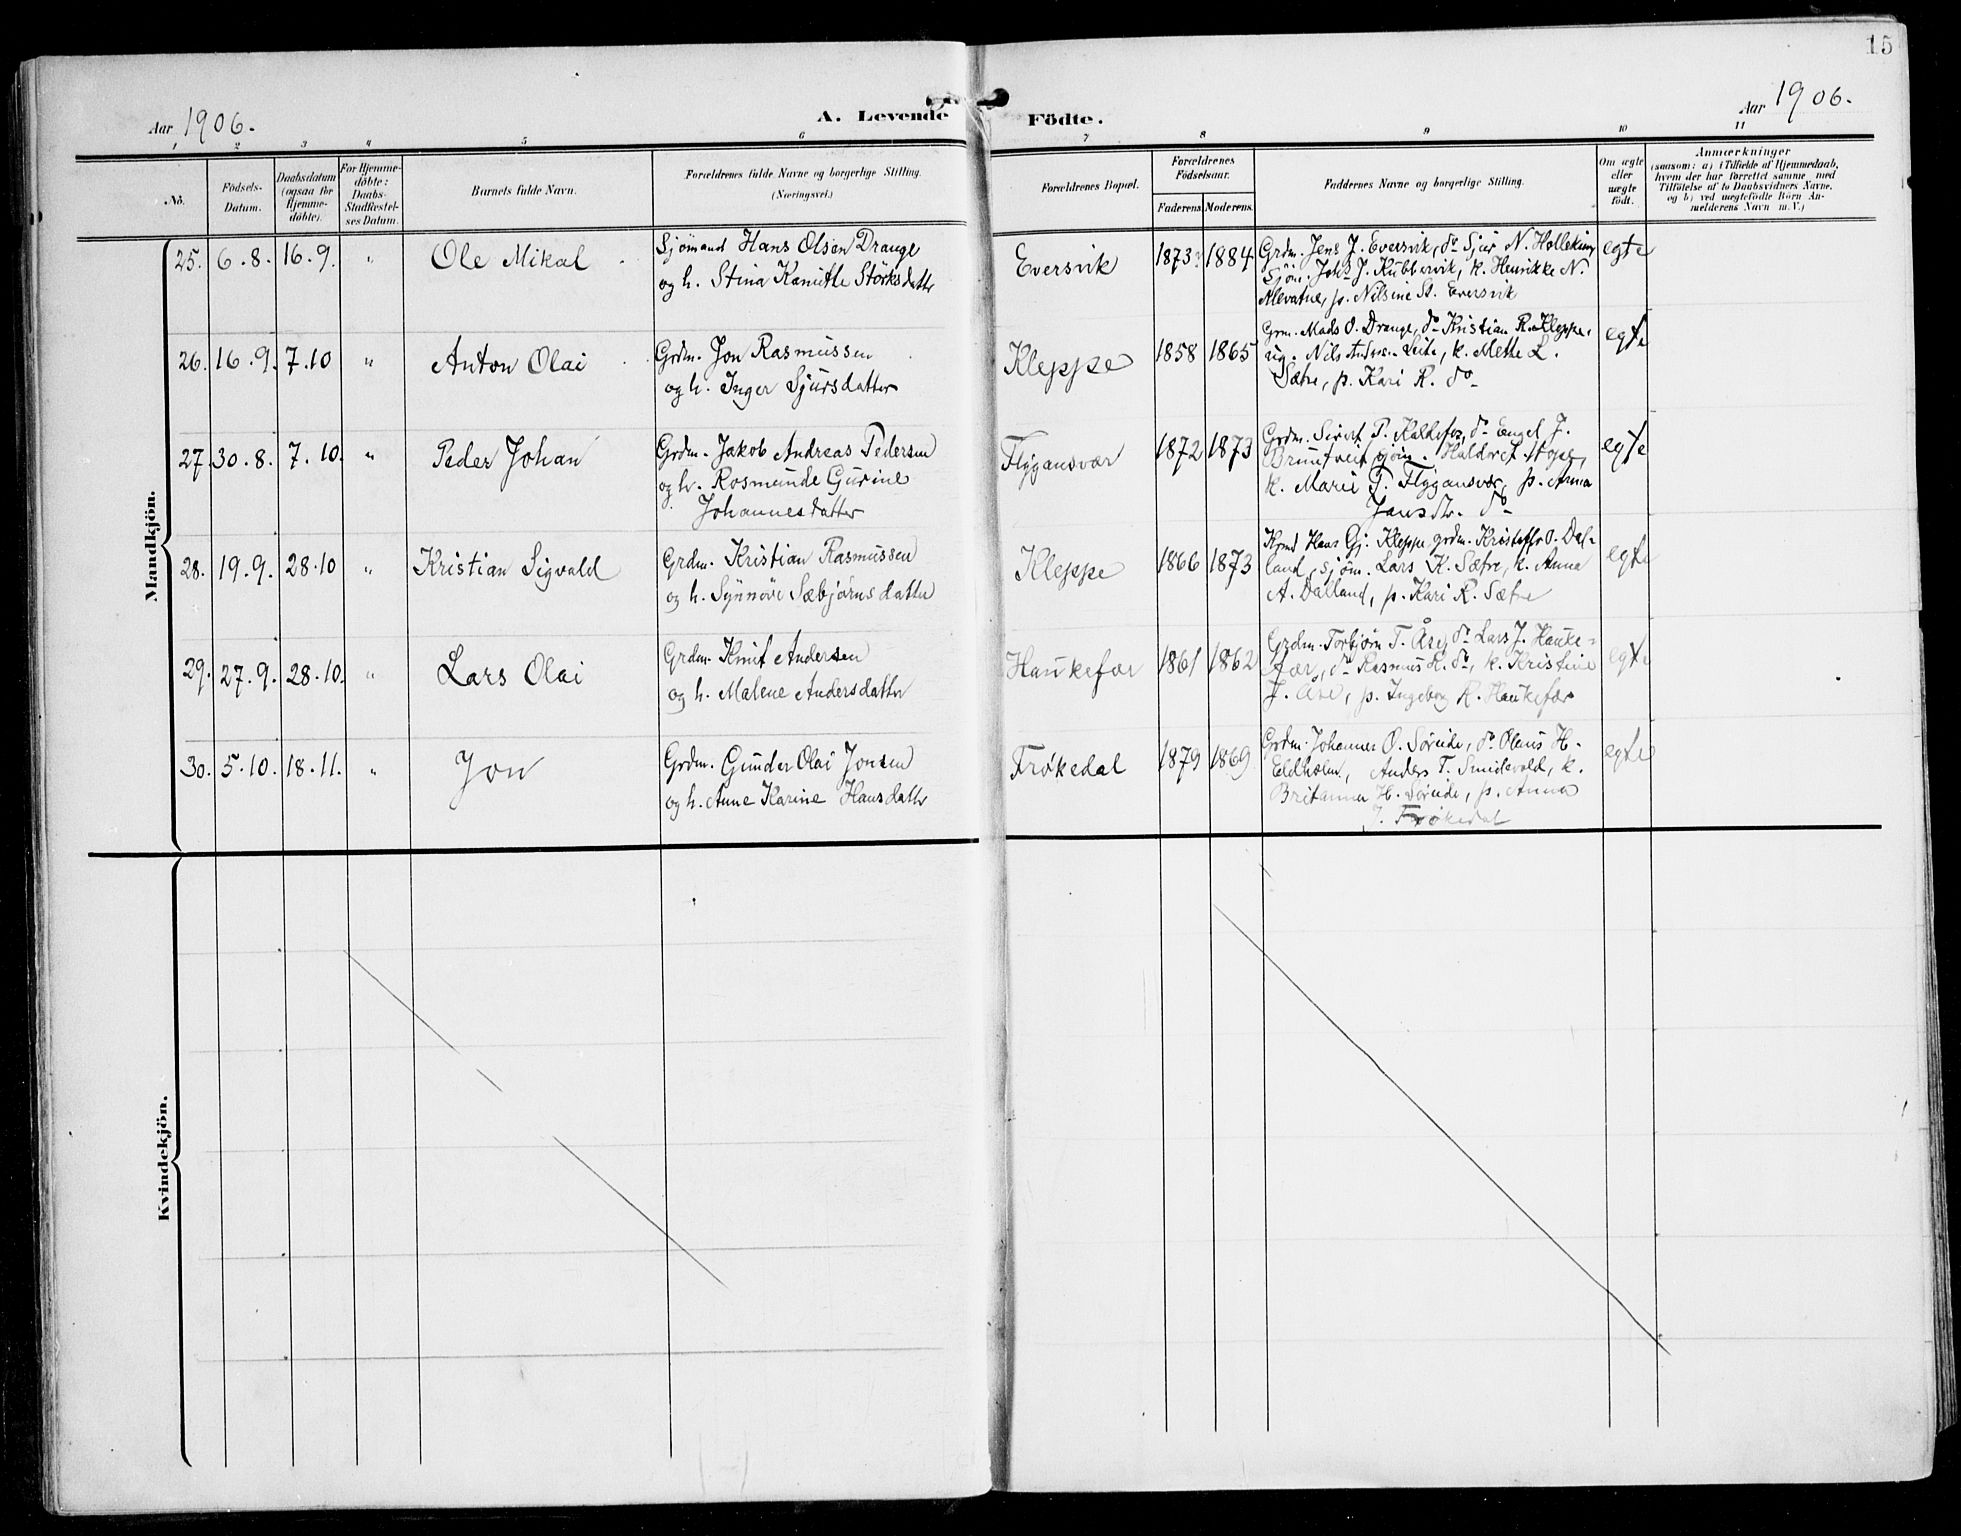 15
Aar 1906.
A. Levende Födte.
Aar 1906.
1 2 3 4 5 6 7 8 9 10 11
No.
Födsels-Datum.
Daabsdatum (ogsaa for Hjemme-döbte).
For Hjemme-döbte: Daabs-Stadfæstel-ses Datum.
Barnets fulde Navn.
Forældrenes fulde Navne og borgerlige Stilling.
(Næringsvei.)
Forældrenes Bopæl.
Forældrenes Födselsaar.
Faderens. Moderens.
Faddernes Navne og borgerlige Stilling.
Om ægte eller uægte födt.
Anmærkninger
(saasom: a) i Tilfælde af Hjemmedaab,
hvem der har forrettet samme, med
Tilföielse af to Daabsvidners Navne,
og b) ved uægtefödte Börn An-
melderens Navn m. V.)
Mandkjön.
25. 6.8. 16.9. " Ole Mikal
Sjömand Hans Olsen Drange
og h. Stina Kamitte Störksdattr
Eversvik 1873 1884
Grdm. Jens J. Eversvik, do Sjur N. Hollekim,
Sjöm. Johs J. Kubbervik, k. Henrikke N.
Alevatne, p. Nilsine St. Eversvik
egte
26. 16.9. 7.10 " Anton Olai
Grdm. Jon Rasmussen
og h. Inger Sjursdatter
Kleppe 1858 1865
Grm. Mads O. Drange, do Kristian R. Kleppe,
ug. Nils Anders. Leite, k. Mette L.
Sætre, p. Kari R. do
egte
27. 30.8. 7.10. " Peder Johan
Grdm. Jakob Andreas Pedersen
og h. Rosmunde Gurine
Johannesdatter
Flygansvær 1872 1873
Grdm. Sivert P. Kaldefos, do Engel J.
Bruntveit, sjöm. Haldret Hope,
k. Marie P. Flygansvær, p. Anna
Jansdtr. do
egte
28. 19.9. 28.10 " Kristian Sigvald
Grdm. Kristian Rasmussen
og h. Synnöve Sæbjörnsdatter
Kleppe 1866 1873
Hans Gj. Kleppe, grdm. Kristoffr O. Dal-
land, sjöm. Lars K. Sætre, k. Anna
A. Dalland, p. Kari R. Sætre
egte
29. 27.9. 28.10. " Lars Olai
Grdm. Knut Andersen
og h. Malene Andersdattr
Haukefær 1861 1862
Grdm. Torbjörn T. Åse, do Lars J. Hauke-
fær, do Rasmus K. do, k. Kristine
J. Åse, p. Ingeborg K. Haukefær
egte
30. 5.10. 18.11. " Jon
Grdm. Gunder Olai Jonsen
og h. Anne Karine Hansdattr
Frøkedal 1879 1869
Grdm. Johannes O. Söreide, do Olaus H.
Eldholm, Anders T. Smidevold, k.
Britanna H. Söreide, p. Anna
J. Frøkedal
egte
Kvindekjön.